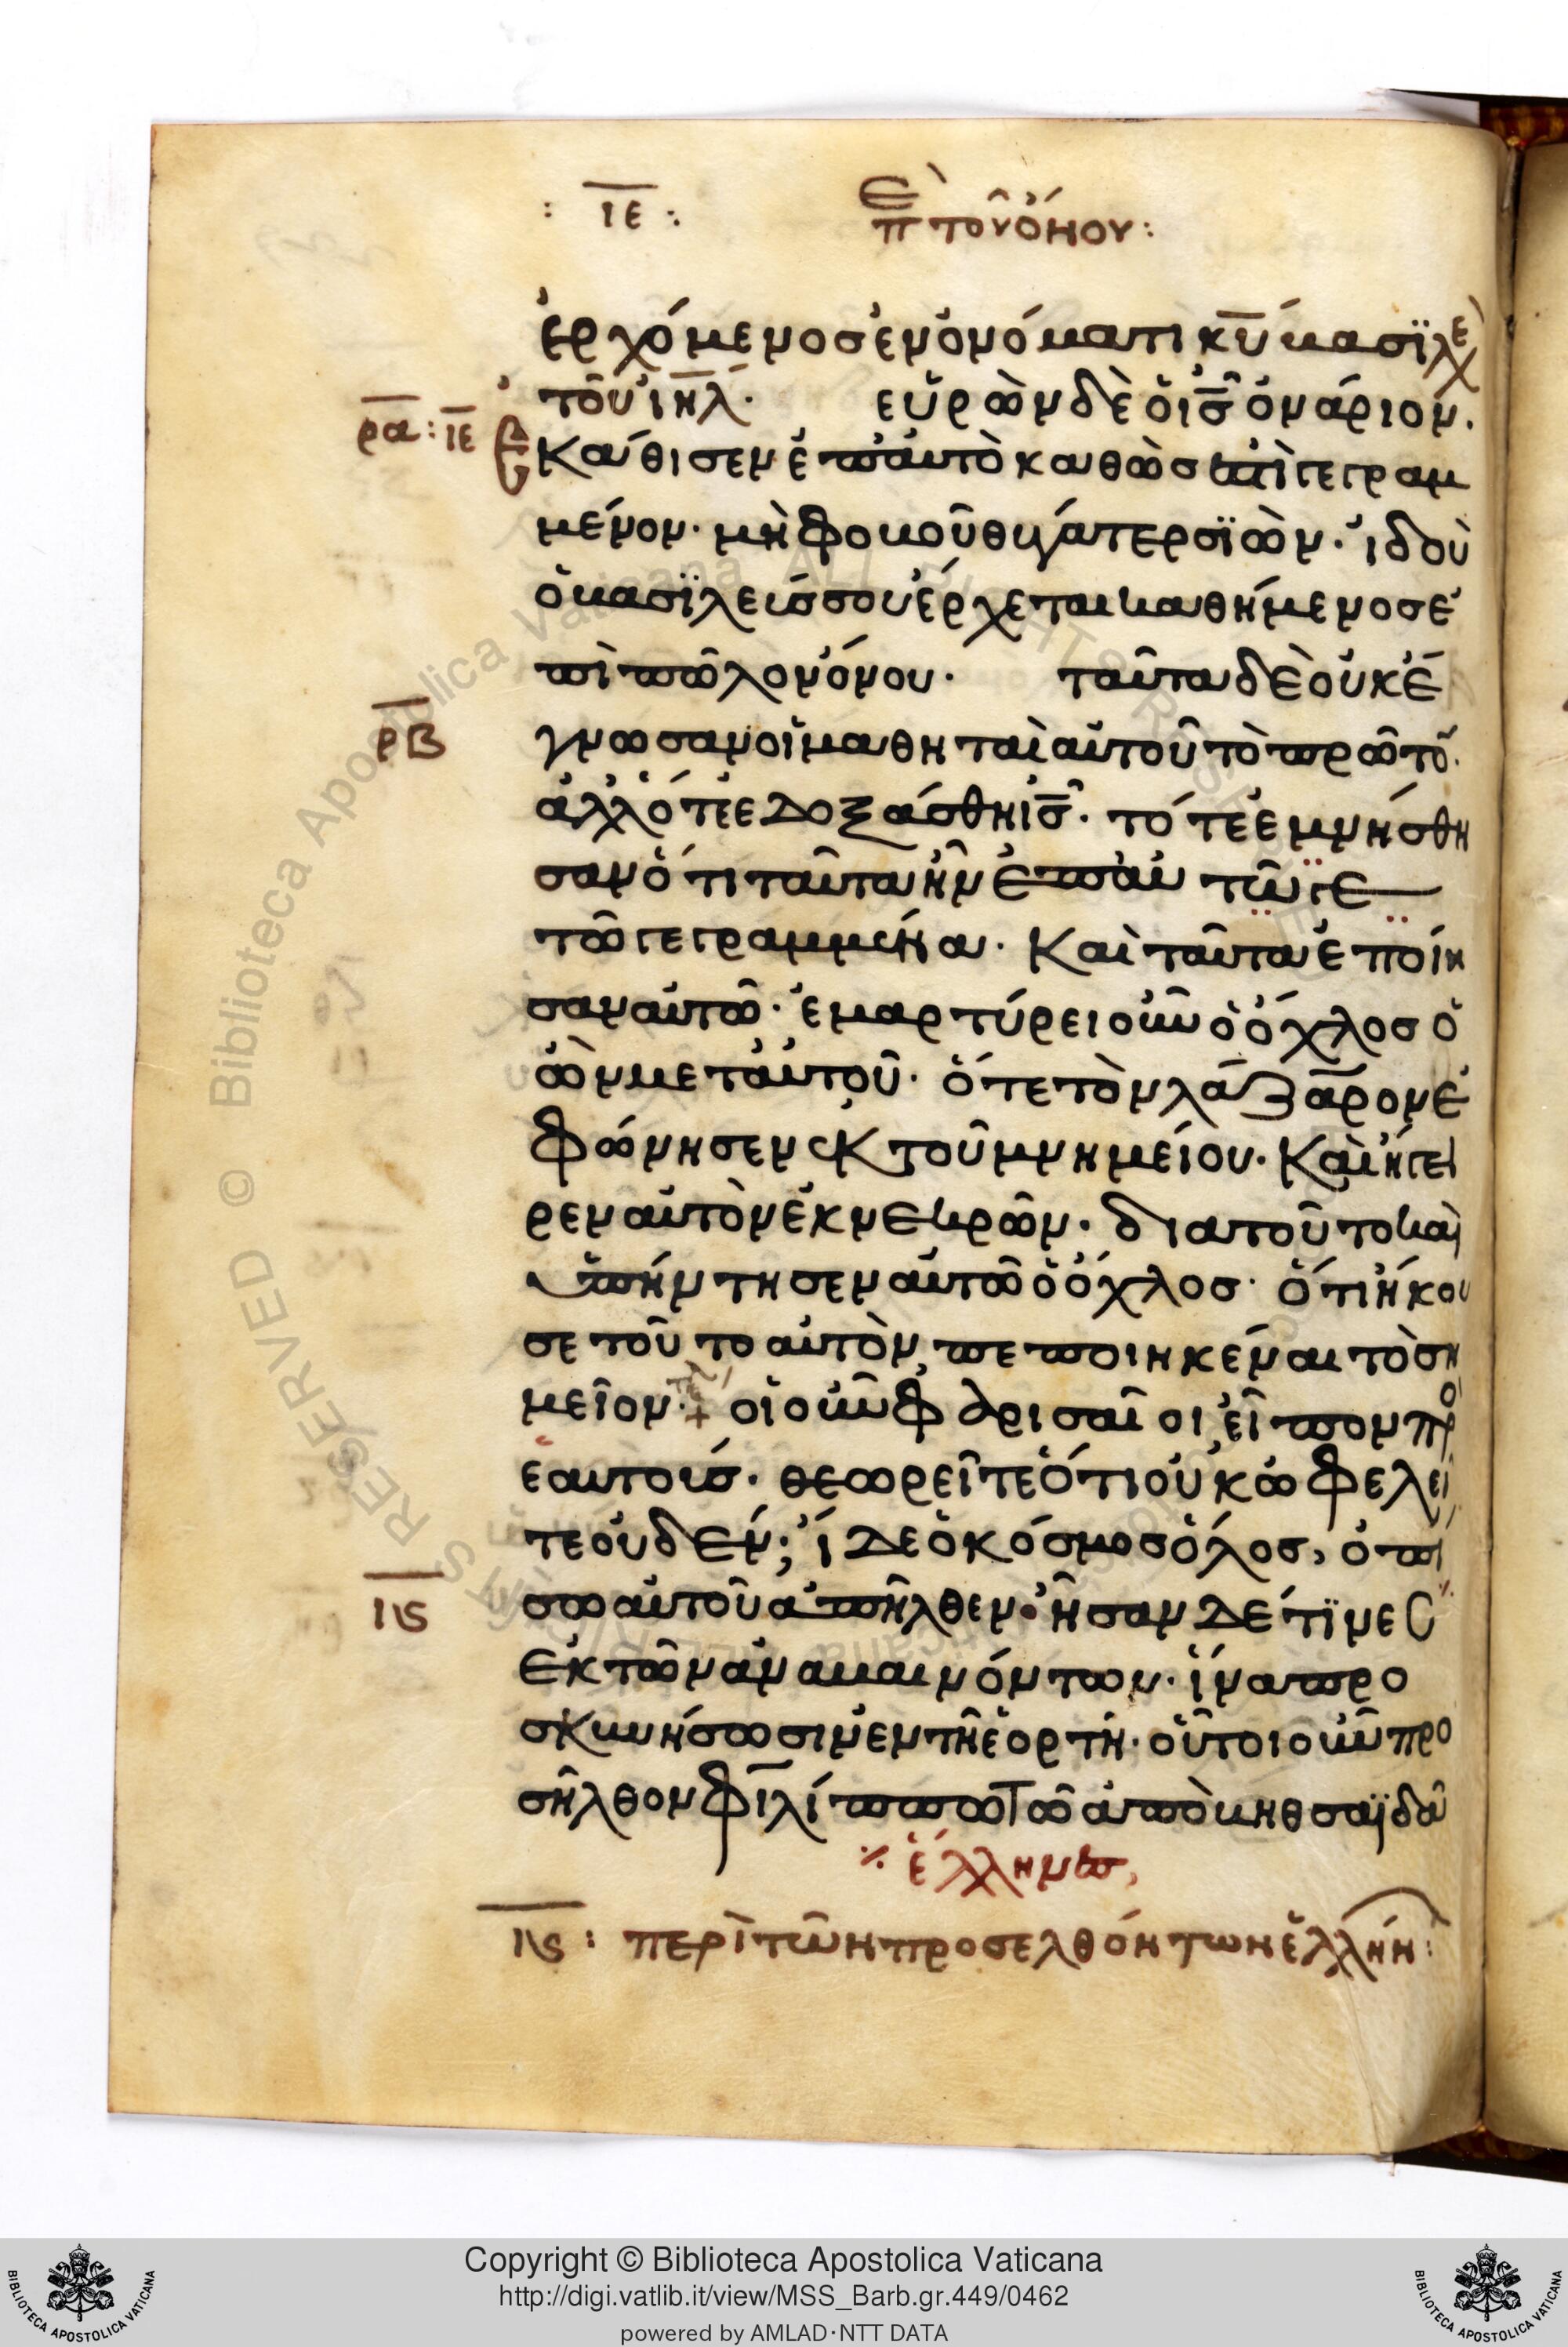 : ΙΕ : Ἐπὶ τοῦ ὄνου :
ἐρχόμενος ἐν ὀνόματι κ̅υ̅ βασϊλε
τοῦ ι̅η̅λ̅· εὑρὼν δὲ ὁ ι̅ς̅ ὀνάριον.
ρα : ιε
ἐκάθισεν ἐπ' αὐτὸ καθὼς ἐστὶ γεγραμ
μένον· μὴ φοβοῦ θύγατερ σϊὼν· ἰδοὺ
ὁ βασϊλεύς σου ἔρχεται καθήμενος ἐ
πὶ πῶλον ὄνου· ταῦτα δὲ οὐκ ἔ
ρβ
γνωσαν οἱ μαθηταὶ αὐτοῦ τὸ πρῶτο̅.
ἀλλ' ὅτε ἐδοξάσθη ι̅ς̅· τότε ἐμνήσθη
σαν ὅτι ταῦτα ἦν ἐπ' αὐτῶ γε
τῶ γεγραμμένα· Καὶ ταῦτα ἐποίη
σαν αὐτῶ· ἐμαρτύρει οὖν ὁ ὄχλος ὁ
ὢν μετ' αὐτοῦ· ὅτε τὸν λάζαρον ἐ
φώνησεν ἐκ τοῦ μνημείου· Καὶ ἤγει
ρεν αὐτὸν ἐκ νεκρῶν· διατοῦτο καὶ
ὑπήντησεν αὐτῶ ὁ ὄχλος· ὅτι ἤκου
σε τοῦτο αὐτὸν πεποιηκέναι τὸ ση
μεῖον· + οἱ οὖν φαρισαῖοι εἶπον πρ̅ο
ἑαυτούς· θεωρεῖτε ὅτι οὐκ ὠφελεῖ
τε οὐδέν; ἴδε ὁ κόσμος ὅλος, ὀπί
σω αὐτοῦ ἀπῆλθεν· ἦσαν δέ τϊνες
ις
ἐκ τῶν ἀναβαινόντων· ἵνα προ
σκυνήσωσιν ἐν τῆ ἑορτῆ· οὗτοι οὖν προ
σῆλθον φιλίππω τῶ ἀπὸ βηθσαϊδὰ
⁒ ἕλληνες,
ις : περὶ τῶν προσελθόντων ἑλλήν :
Copyright © Biblioteca Apostolica Vaticana
http://digi.vatlib.it/view/MSS_Barb.gr.449/0462
powered by AMLAD·NTT DATA
BIBLIOTECA APOSTOLICA VATICANA
BIBLIOTECA APOSTOLICA VATICANA